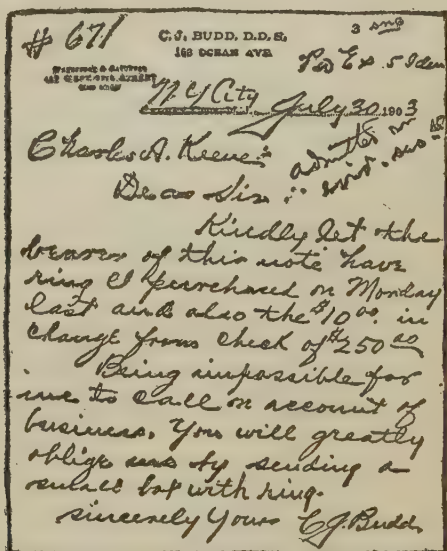 # 671
C. J. BUDD, D.D.S.
168 OCEAN AVE.
N.Y City July 30 1903
Charles A. Keene
Dear Sir:
Kindly let the
bearer of this note have
ring I purchased on Monday
last and also the $10.00 in
change from check of $250.00
Being impossible for
me to call on account of
business. You will greatly
oblige me by sending a
small box with ring.
Sincerely Yours C.J. Budd